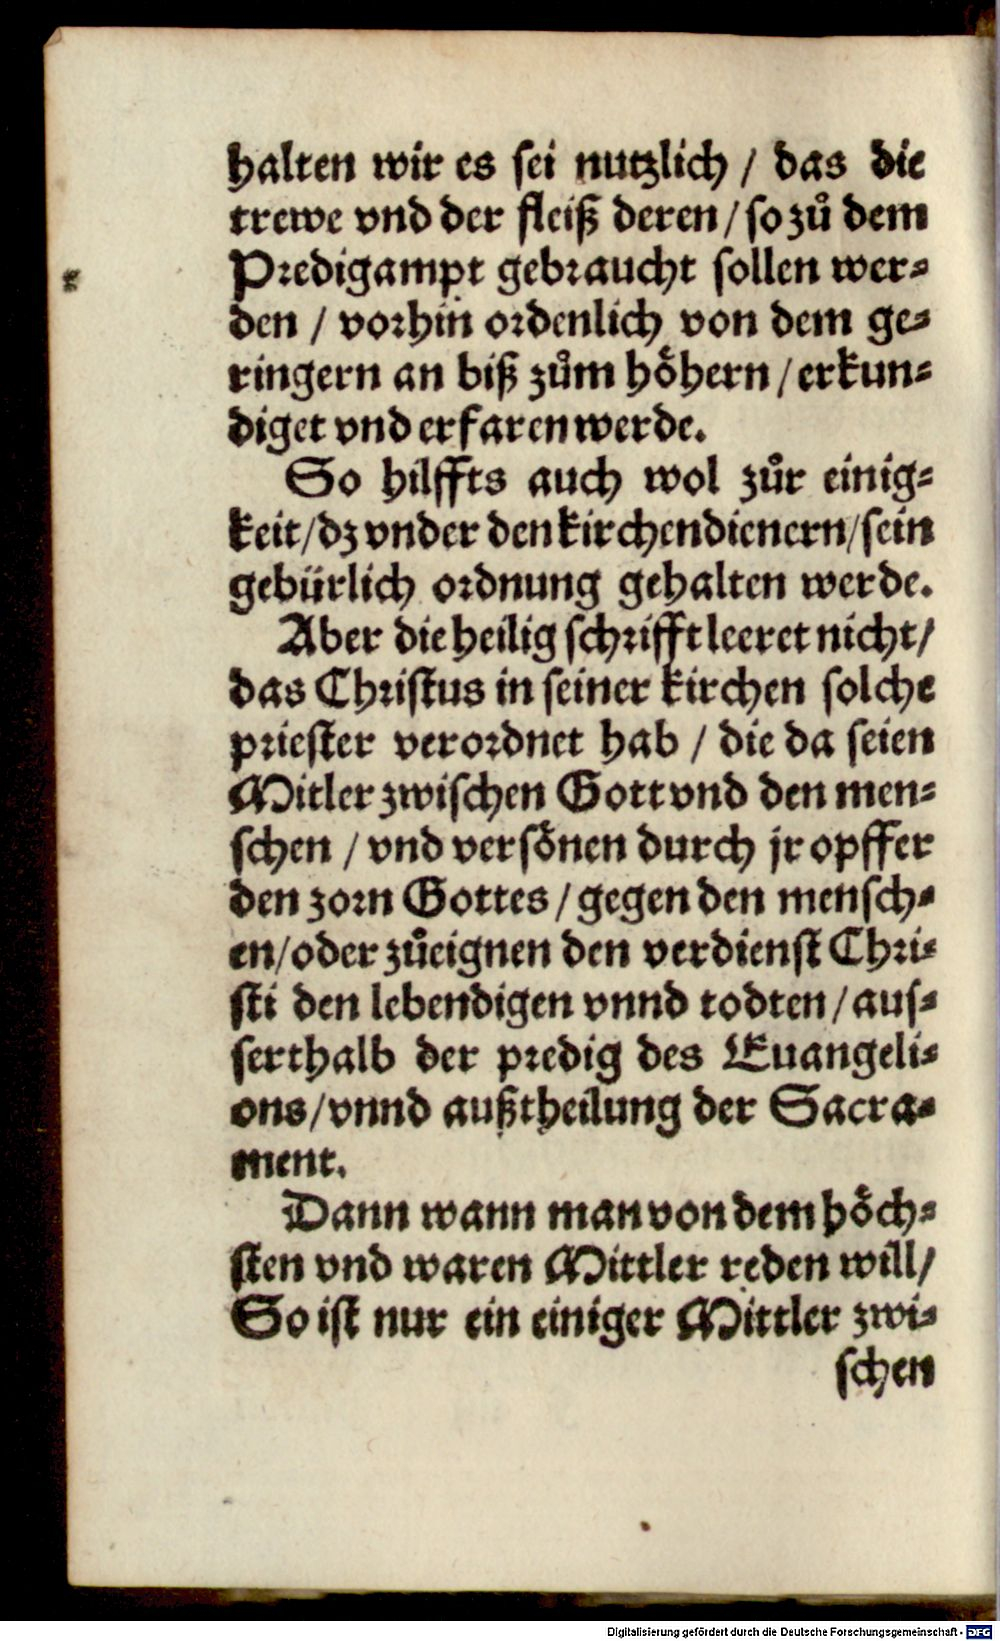 halten wir es sei nutzlich / das die
trewe vnd der fleiß deren / so zů dem
Predigampt gebraucht sollen wer⸗
den / vorhin ordenlich von dem ge⸗
ringern an biß zům hoͤhern / erkun⸗
diget vnd erfaren werde.
So hilffts auch wol zůr einig⸗
keit / dz vnder den kirchendienern / sein
gebürlich ordnung gehalten werde.
Aber die heilig schrifft leeret nicht /
das Christus in seiner kirchen solche
priester verordnet hab / die da seien
Mitler zwischen Gott vnd den men⸗
schen / vnd versoͤnen durch jr opffer
den zorn Gottes / gegen den mensch⸗
en / oder zůeignen den verdienst Chri⸗
sti den lebendigen vnnd todten / aus⸗
serthalb der predig des Euangeli⸗
ons / vnnd außtheilung der Sacra⸗
ment.
Dann wann man von dem hoͤch⸗
sten vnd waren Mittler reden will /
So ist nur ein einiger Mittler zwi⸗
schen
Digitalisierung gefördert durch die Deutsche Forschungsgemeinschaft - DFG